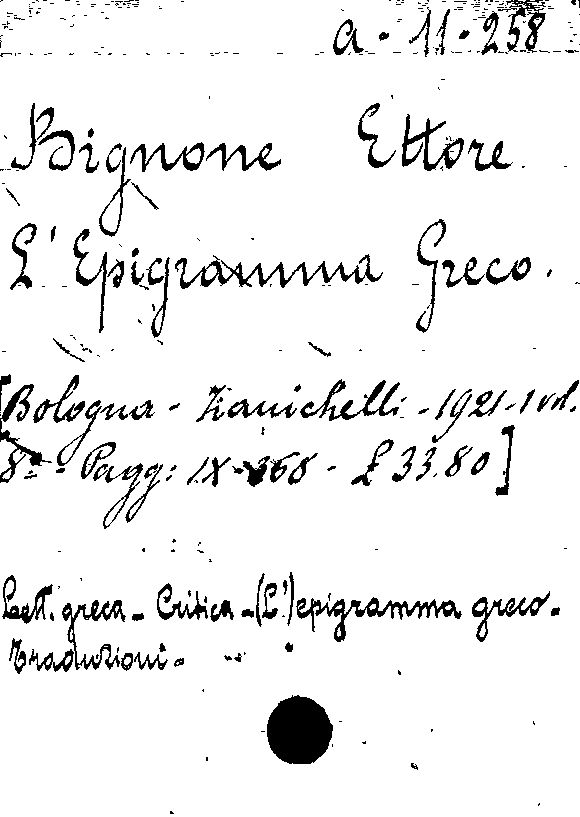 a - 11 - 258
Bignone Ettore
L'Epigramma Greco.
[Bologna - Zanichelli - 1921 - 1 vol.
8º - Pagg: IX - 368 - £ 33.80]
Lett. greca - Critica - (L') epigramma greco -
Traduzioni -